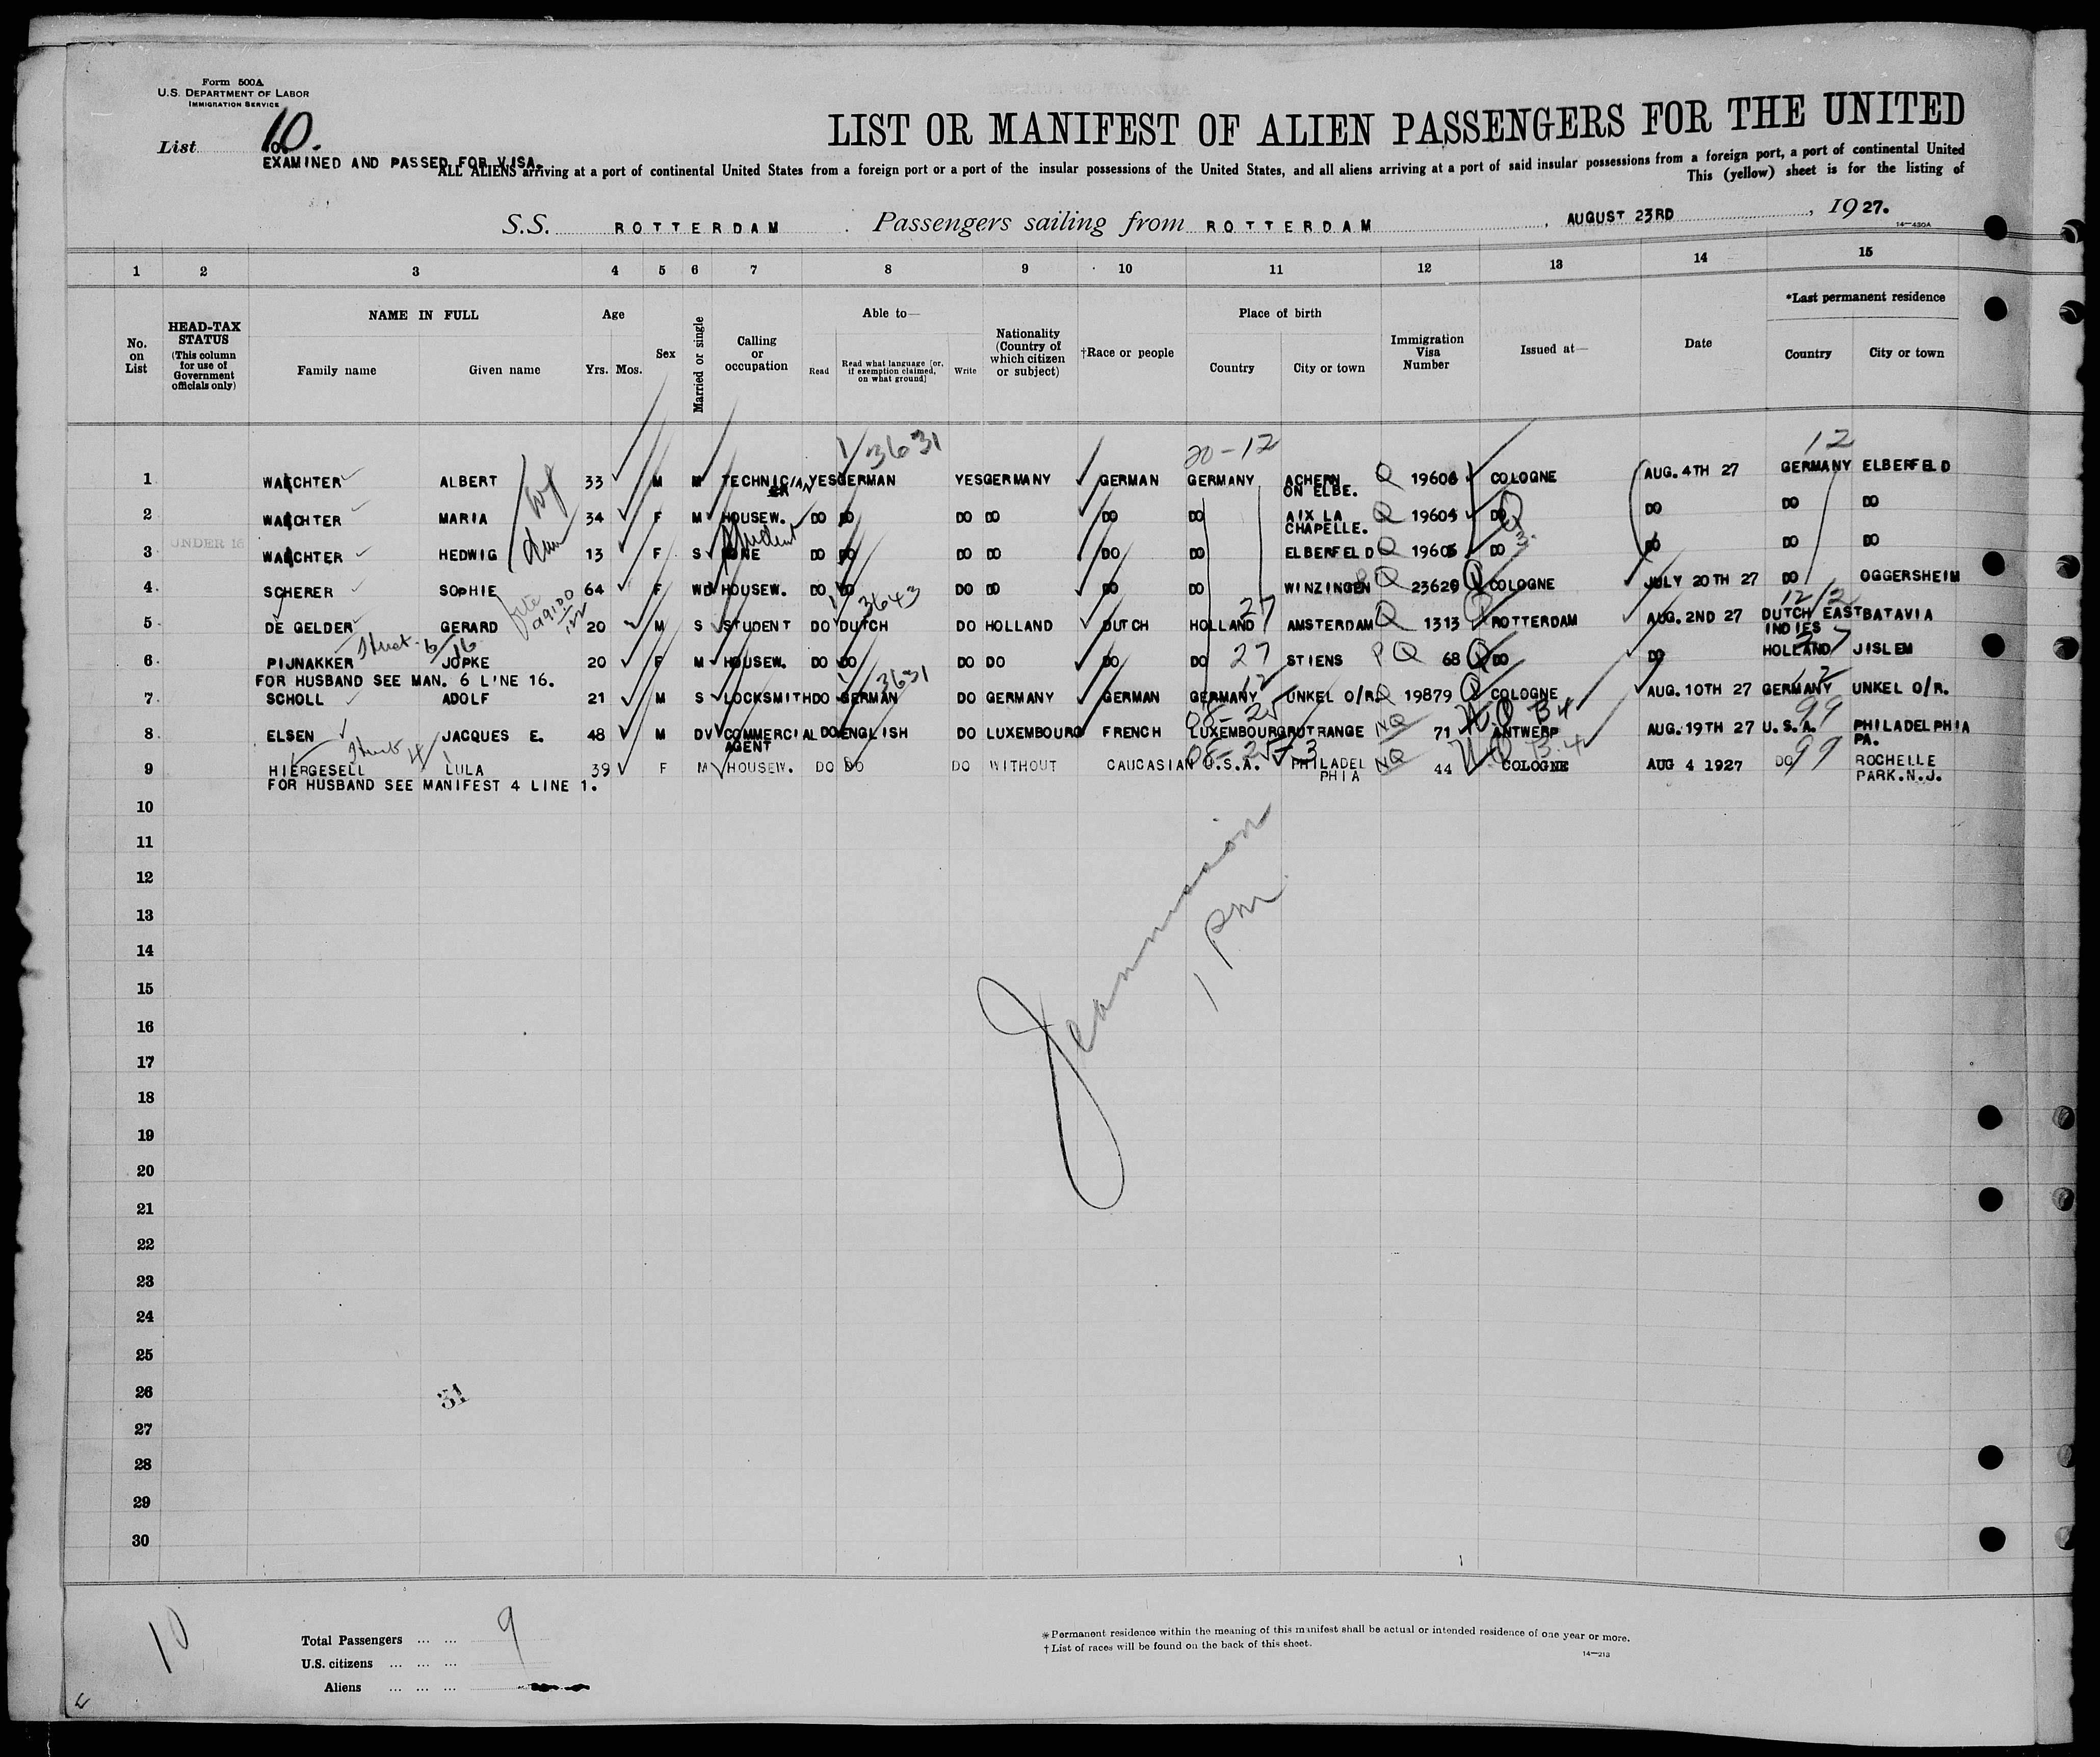 Form 500A
U.S. DEPARTMENT OF LABOR
IMMIGRATION SERVICE
List 10.
LIST OR MANIFEST OF ALIEN PASSENGERS FOR THE UNITED
EXAMINED AND PASSED FOR VISA.
ALL ALIENS arriving at a port of continental United States from a foreign port or a port of the insular possessions of the United States, and all aliens arriving at a port of said insular possessions from a foreign port, a port of continental United
This (yellow) sheet is for the listing of
S.S. ROTTERDAM Passengers sailing from ROTTERDAM, AUGUST 23RD, 1927.
14—430A
1 2 3 4 5 6 7 8 9 10 11 12 13 14 15
No. on List
HEAD-TAX STATUS (This column for use of Government officials only)
NAME IN FULL
Family name Given name
Age
Yrs. Mos.
Sex
Married or single
Calling or occupation
Able to—
Read Read what language [or, if exemption claimed, on what ground] Write
Nationality (Country of which citizen or subject)
†Race or people
Place of birth
Country City or town
Immigration Visa Number
Issued at—
Date
*Last permanent residence
Country City or town
1/3631 20-12 12
1 WAECHTER ALBERT 33 M M TECHNICIAN YES GERMAN YES GERMANY GERMAN GERMANY ACHERN ON ELBE. Q 19606 COLOGNE AUG. 4TH 27 GERMANY ELBERFELD
2 WAECHTER MARIA wf 34 F M HOUSEW. DO DO DO DO DO DO AIX LA CHAPELLE. Q 19604 DO DO DO DO
Student
3 UNDER 16 WAECHTER HEDWIG dau 13 F S NONE DO DO DO DO DO DO ELBERFELD Q 19605 DO DO DO DO
4 SCHERER SOPHIE 64 F WD HOUSEW. DO DO DO DO DO DO WINZINGEN Q 23620 Q COLOGNE JULY 20TH 27 DO OGGERSHEIM
1/3643 27 12/2
5 DE GELDER GERARD 20 M S STUDENT DO DUTCH DO HOLLAND DUTCH HOLLAND AMSTERDAM Q 1313 Q ROTTERDAM AUG. 2ND 27 DUTCH EAST INDIES BATAVIA
6/16
6 PIJNAKKER JOPKE 20 F M HOUSEW. DO DO DO DO DO DO 27 STIENS PQ 68 Q DO DO HOLLAND 27 JISLEM
FOR HUSBAND SEE MAN. 6 LINE 16.
1/3631 12 12
7 SCHOLL ADOLF 21 M S LOCKSMITH DO GERMAN DO GERMANY GERMAN GERMANY UNKEL O/R. Q 19879 Q COLOGNE AUG. 10TH 27 GERMANY UNKEL O/R.
08-25 99
8 ELSEN JACQUES E. 48 M DV COMMERCIAL AGENT DO ENGLISH DO LUXEMBOURG FRENCH LUXEMBOURG RUTRANGE NQ 71 N.Q B.4 ANTWERP AUG. 19TH 27 U.S.A. PHILADELPHIA PA.
9 HIERGESELL LULA 39 F M HOUSEW. DO DO DO WITHOUT CAUCASIAN U.S.A. PHILADELPHIA NQ 44 N.Q B.4 COLOGNE AUG 4 1927 DO 99 ROCHELLE PARK.N.J.
FOR HUSBAND SEE MANIFEST 4 LINE 1.
10
11
12
13
14
15
16
17
18
19
20
21
22
23
24
25
26
27
28
29
30
1 pm
51
10
Total Passengers ... ... 9
U.S. citizens ... ... ...
Aliens ... ... ...
*Permanent residence within the meaning of this manifest shall be actual or intended residence of one year or more.
†List of races will be found on the back of this sheet.
14—213